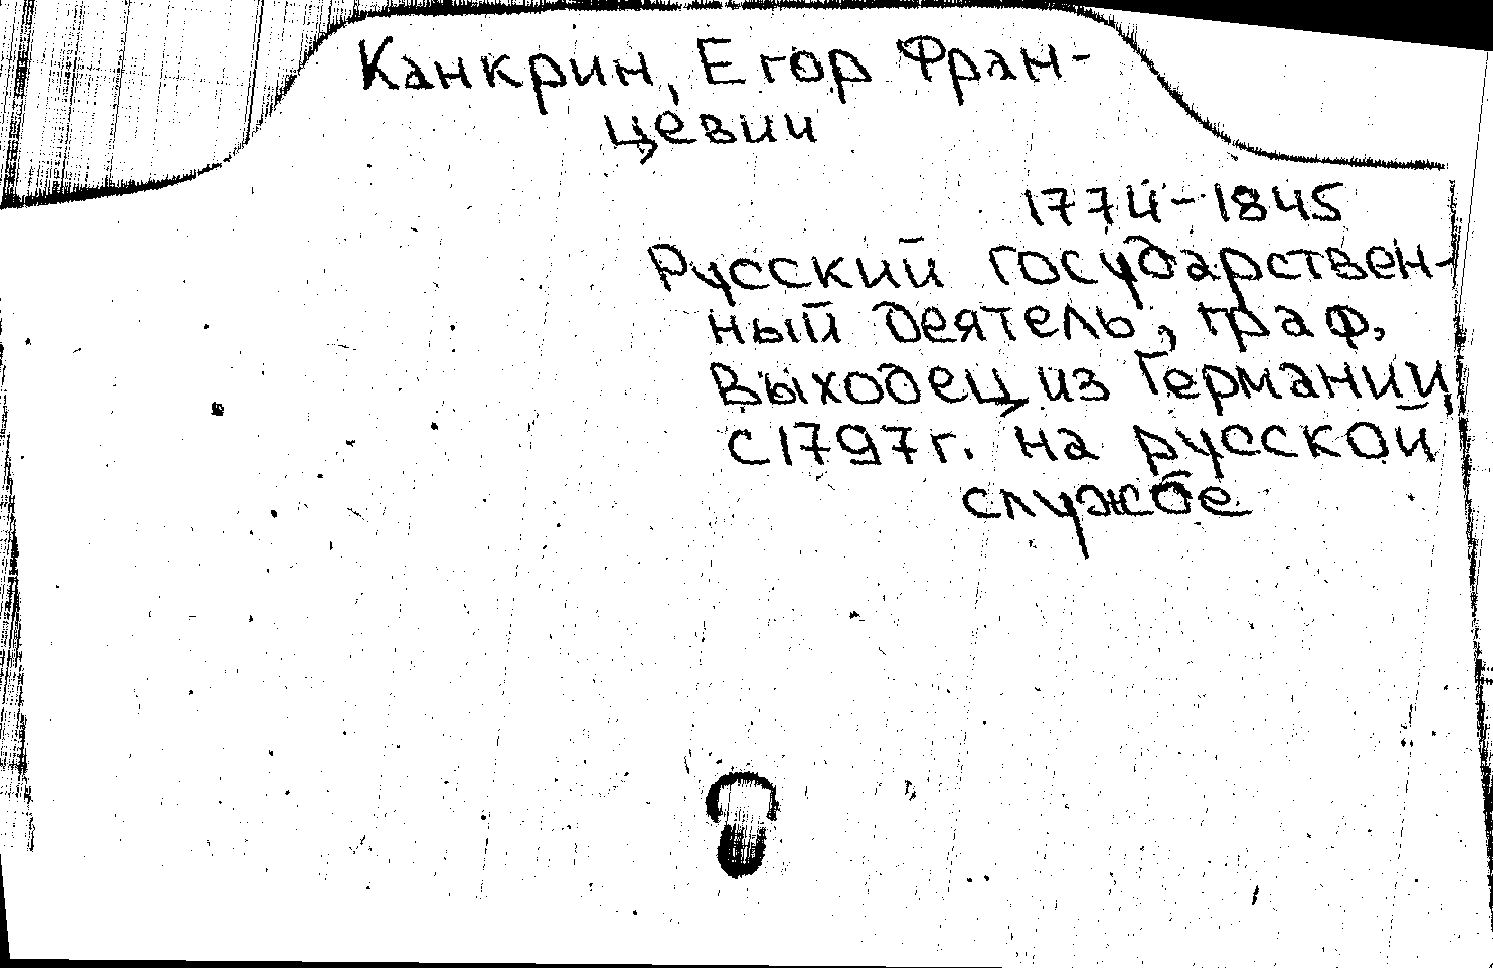 Канкрин, Егор Фран-
цевич
1774-1845
Русский государствен-
ный деятель, граф,
выходец из Германии,
с 1797 г. на русской
службе